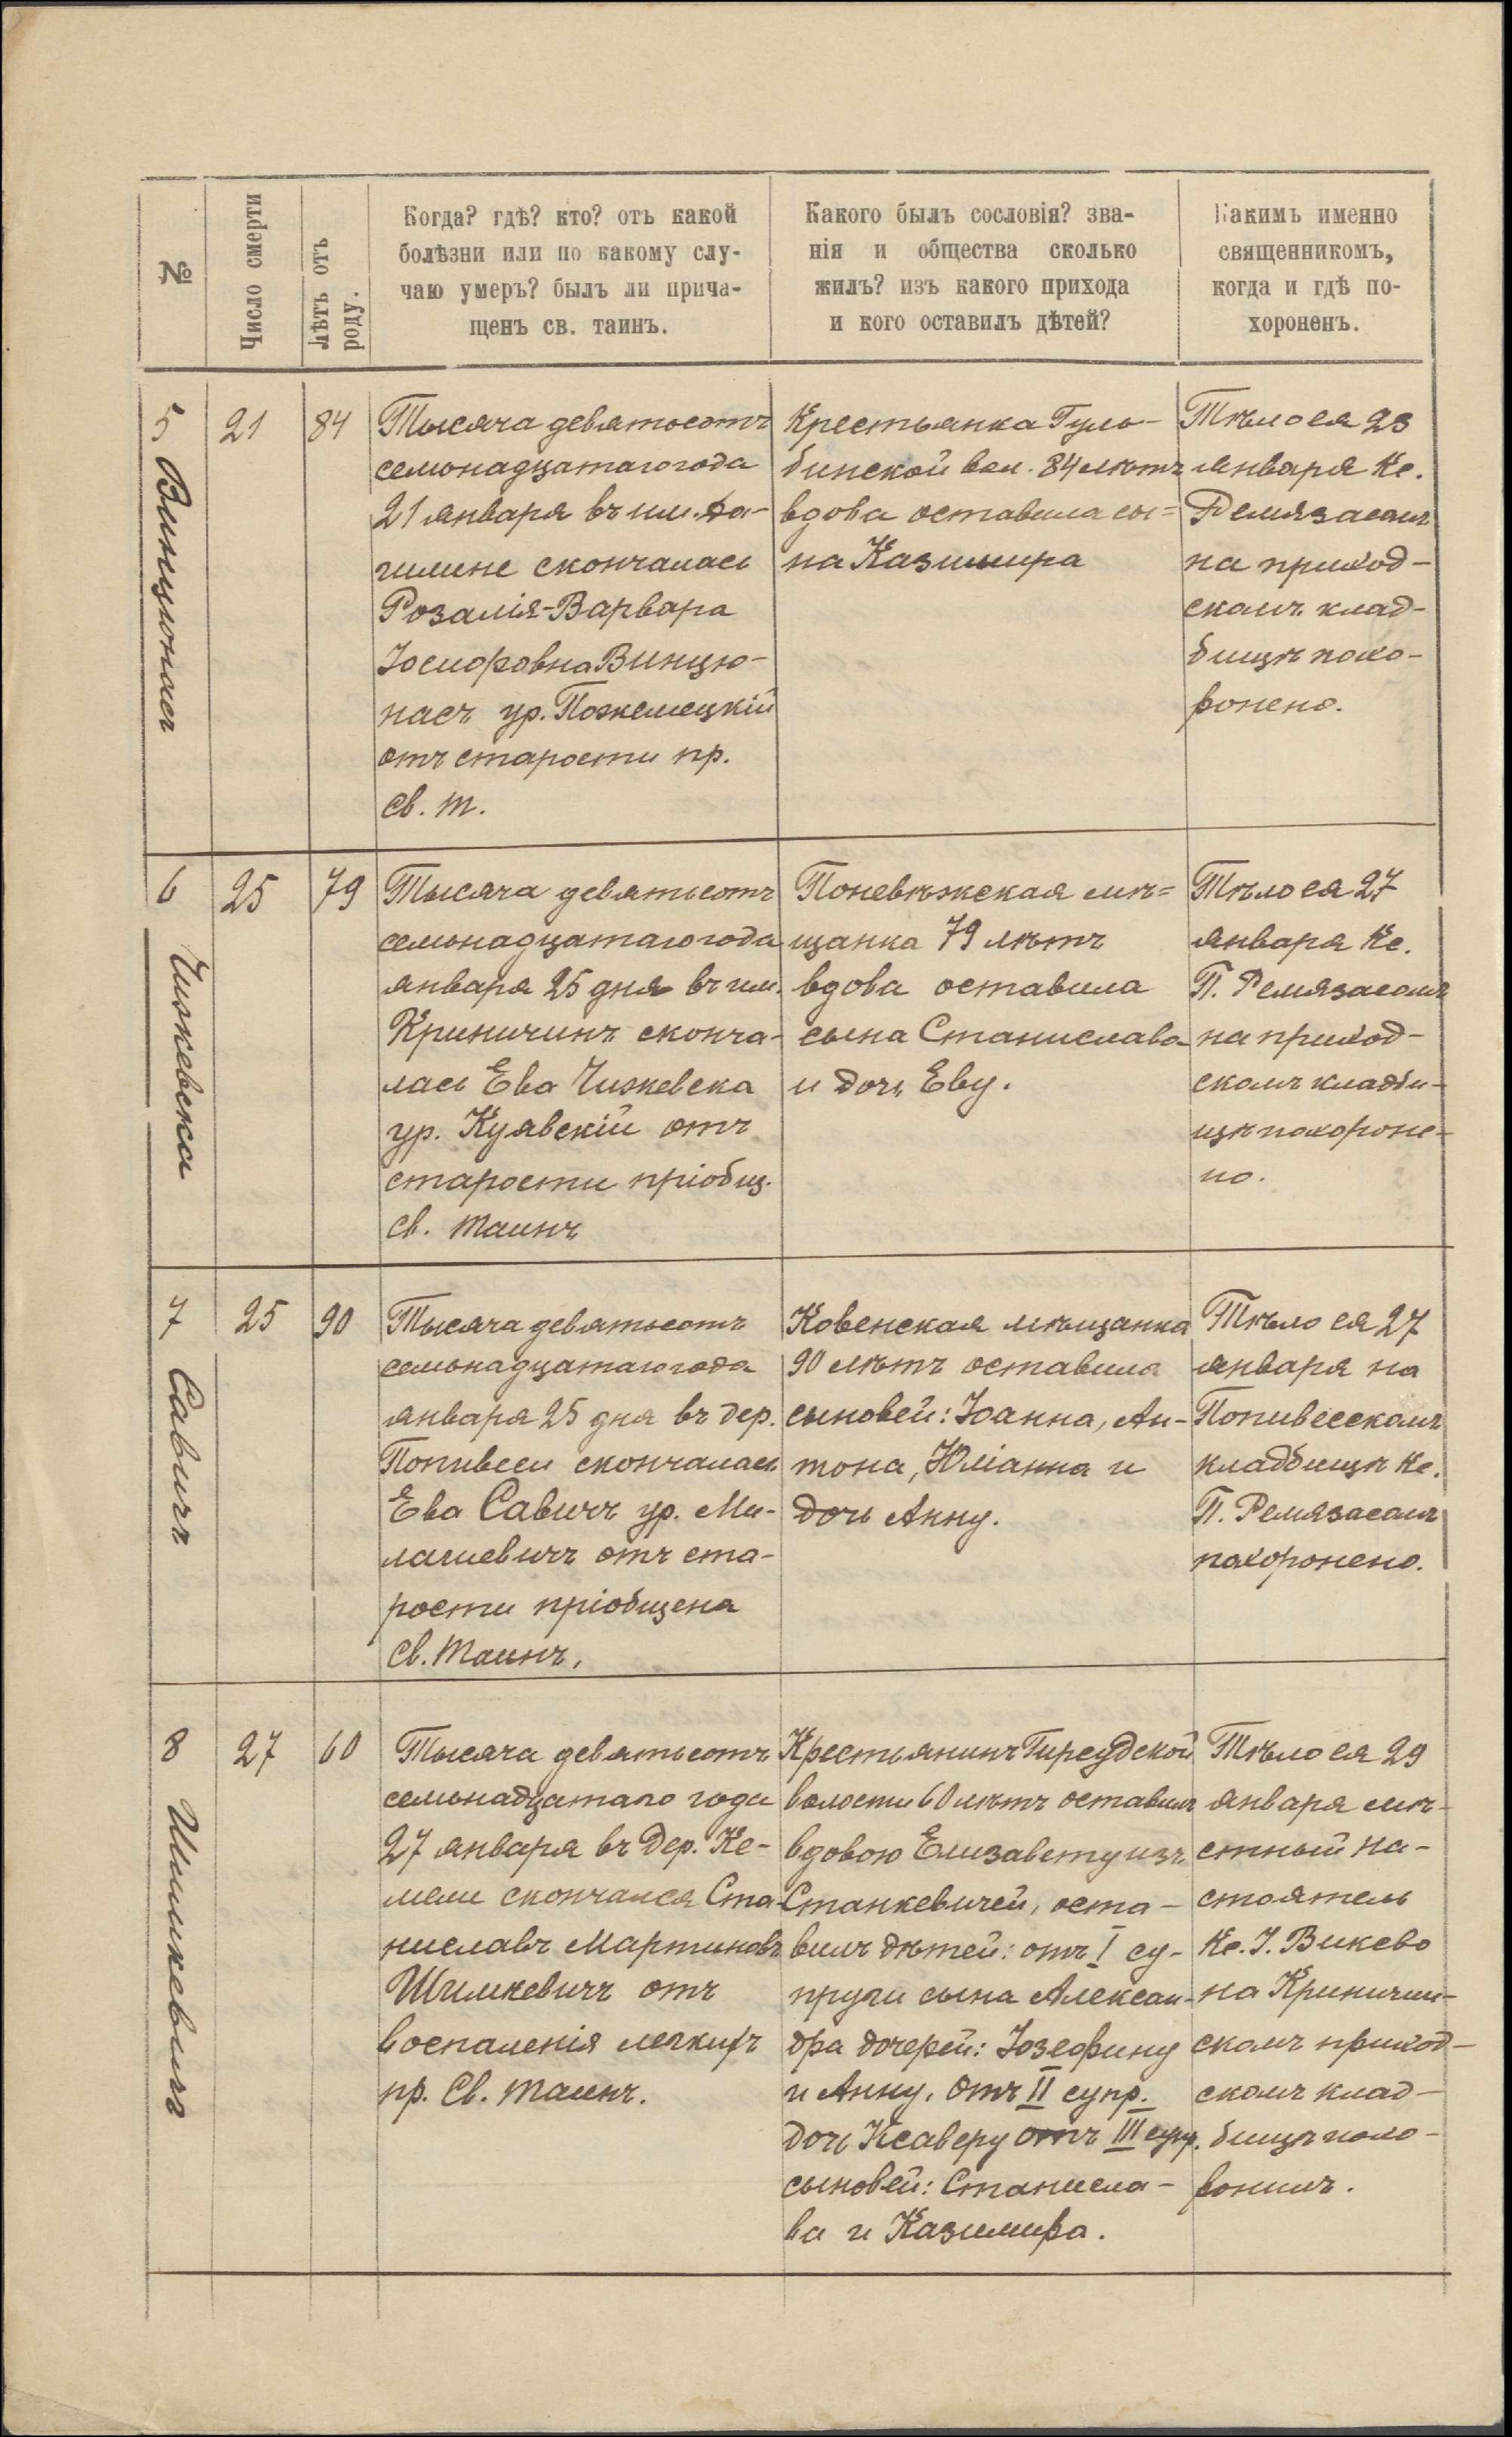 №
Число смерти
Лѣтъ отъ
роду.
Когда? гдѣ? кто? отъ какой
болѣзни или по какому слу-
чаю умеръ? былъ ли прича-
щенъ св. таинъ.
Какого былъ сословія? зва-
нія и общества сколько
жилъ? изъ какого прихода
и кого оставилъ дѣтей?
Какимъ именно
священникомъ,
когда и гдѣ по-
хороненъ.
5 Винцюнасъ
21
84
Тысяча девятьсотъ
семьнадцатаго года
21 января въ им. Да-
гилине скончалась
Розалія-Варвара
Іосифовна Винцю-
насъ ур. Пожемецкій
отъ старости пр.
Св. Т.
Крестьянка Гуль-
бинской вол. 84 лѣтъ
вдова оставила сы=
на Казимира
Тѣло ея 23
января Кс.
Ремязасомъ
на приход-
скомъ клад-
бищѣ похо-
ронено.
6 Чижевска
25
79
Тысяча девятьсотъ
семьнадцатаго года
января 25 дня въ им.
Криничинъ сконча-
лась Ева Чижевска
ур. Куявскій отъ
старости пріобщ.
Св. Таинъ
Поневѣжская мѣ=
щанка 79 лѣтъ
вдова оставила
сына Станислава
и дочь Еву.
Тѣло ея 27
января Кс.
П. Ремязасомъ
на приход-
скомъ кладби-
щѣ похороне-
но.
7 Савичъ
25
90
Тысяча девятьсотъ
семьнадцатаго года
января 25 дня въ дер.
Попивеси скончалась
Ева Савичъ ур. Ми-
лашевичъ отъ ста-
рости пріобщена
Св. Таинъ.
Ковенская мѣщанка
90 лѣтъ оставила
сыновей: Іоанна, Ан-
тона, Юліанна и
дочь Анну.
Тѣло ея 27
января на
Попивесскомъ
кладбищѣ Кс.
П. Ремязасомъ
похоронено.
8 Шимкевичъ
27
60
Тысяча девятьсотъ
семьнадцатаго года
27 января въ дер. Ке-
мели скончался Ста-
ниславъ Мартиновъ
Шимкевичъ отъ
воспаленія легкихъ
пр. Св. Таинъ.
Крестьянинъ Гирсудской
волости 60 лѣтъ оставилъ
вдовою Елизавету изъ
Станкевичей, оста-
вилъ дѣтей: отъ I су-
пруги сына Алексан-
дра дочерей: Іозефину
и Анну, отъ II супр.
дочь Ксаверу отъ III супр.
сыновей: Станисла-
ва и Казимира.
Тѣло ея 29
января мѣ-
стный на-
стоятель
Кс. I. Викево
на Криничин-
скомъ приход-
скомъ клад-
бищѣ похо-
ронилъ.